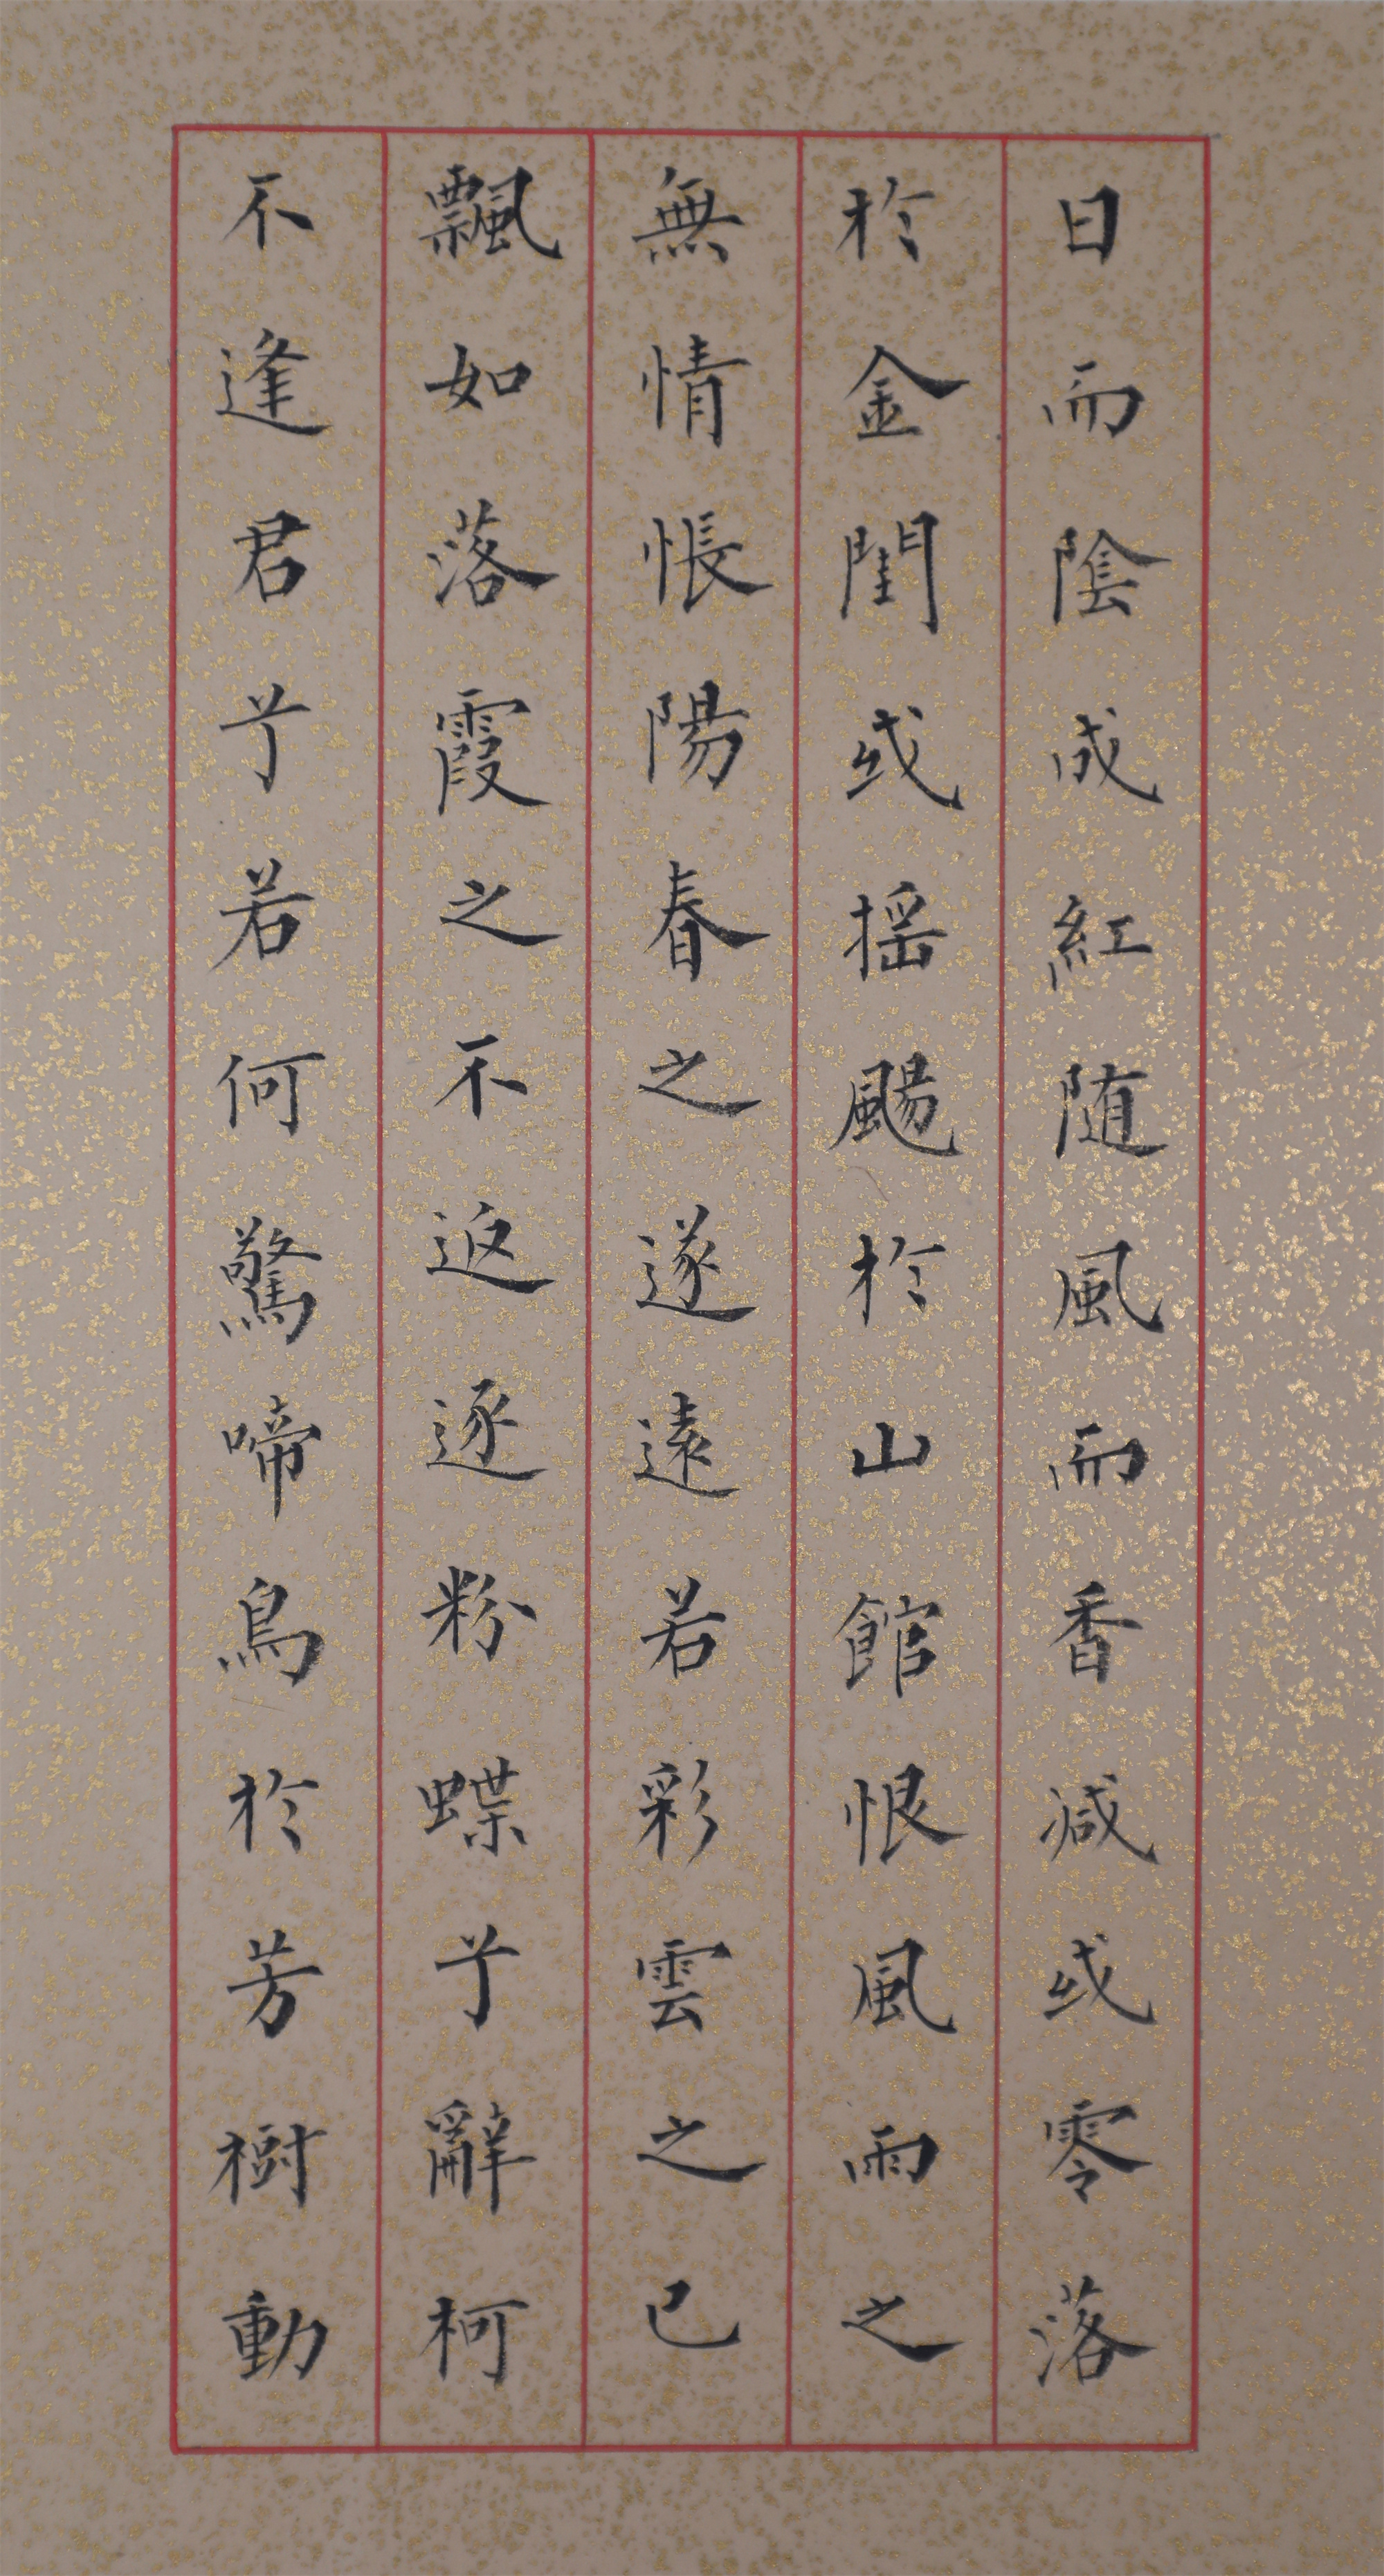 日而陰成紅随風而香减或零落
於金閨或摇颺於山館恨風雨之
無情悵陽春之遂遠若彩雲之已
飄如落霞之不返逐粉蝶兮辭柯
不逢君兮若何驚啼鳥於芳樹動